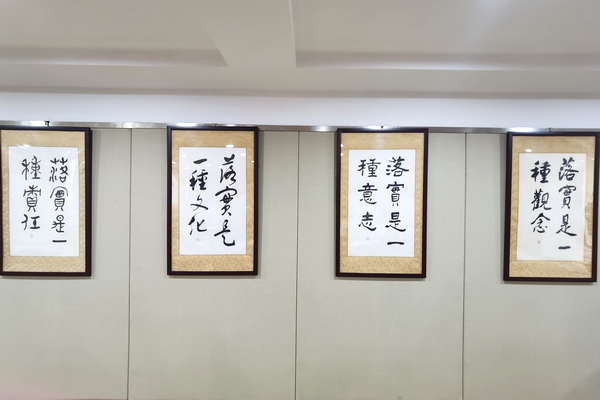 落實是一
種責任
落實是
一種文化
落實是一
種意志
落實是一
種觀念